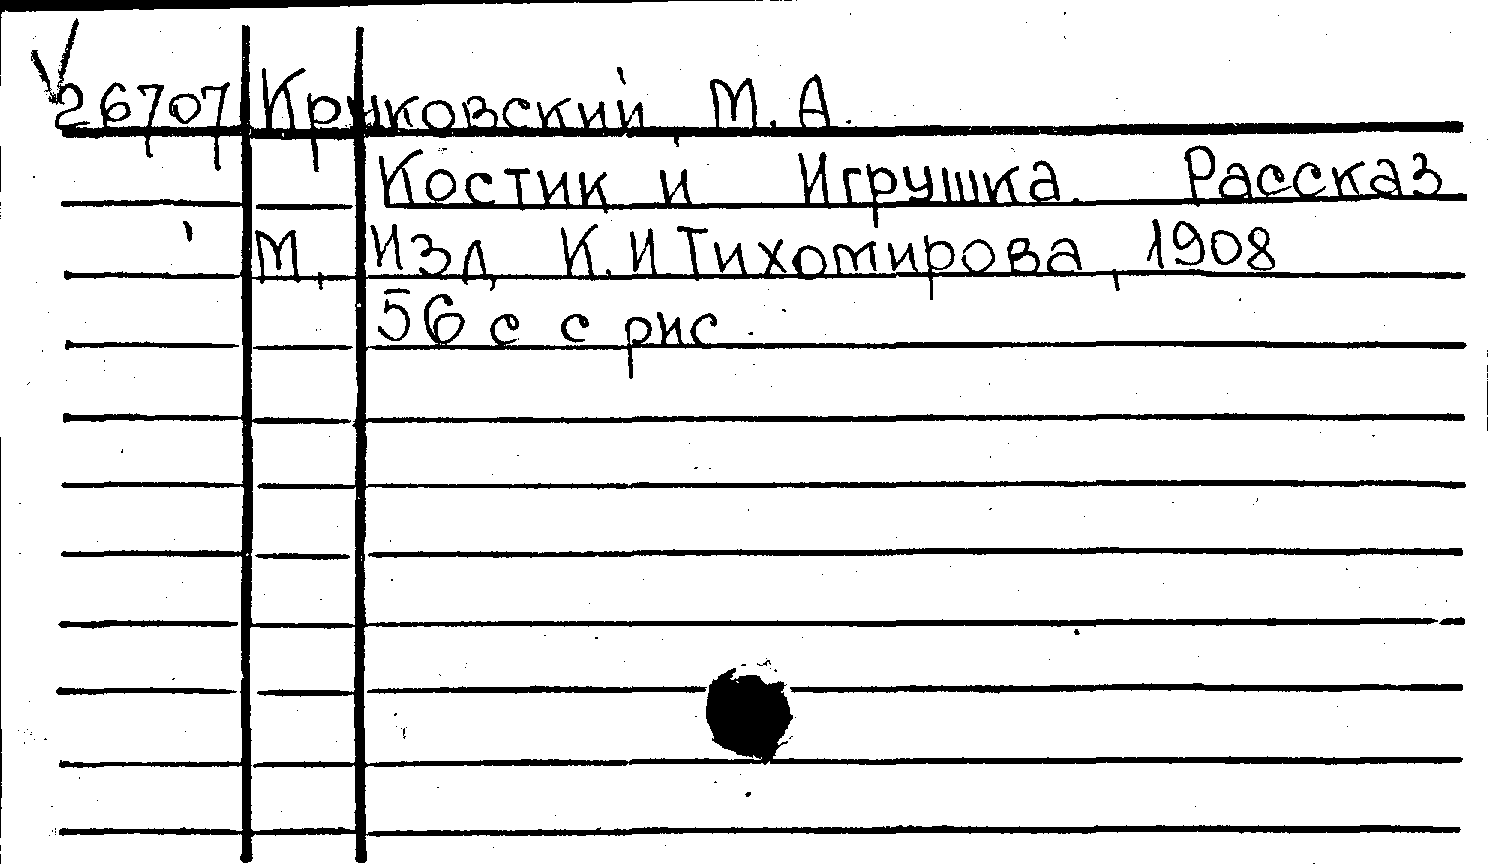 26707 Крюковский, М. А.
Костик и Игрушка. Рассказ
М., Изд. К. И Тихомирова, 1908
56 с с рис.